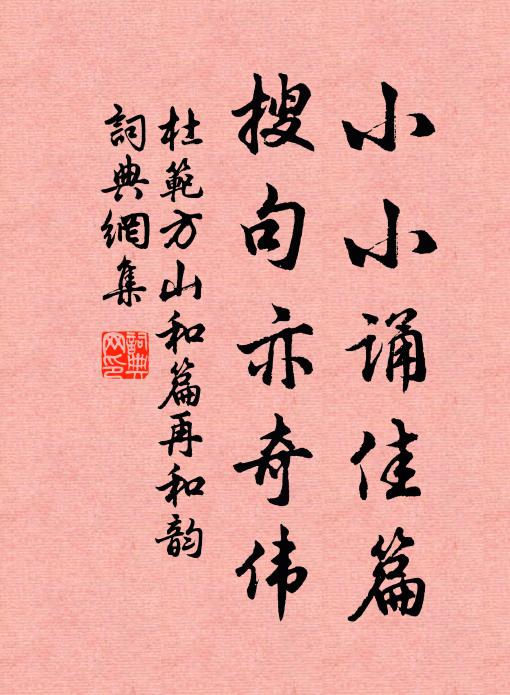 小小诵佳篇
搜句亦奇伟
杜範方山和篇再和韵
詞典網集
詞典网印